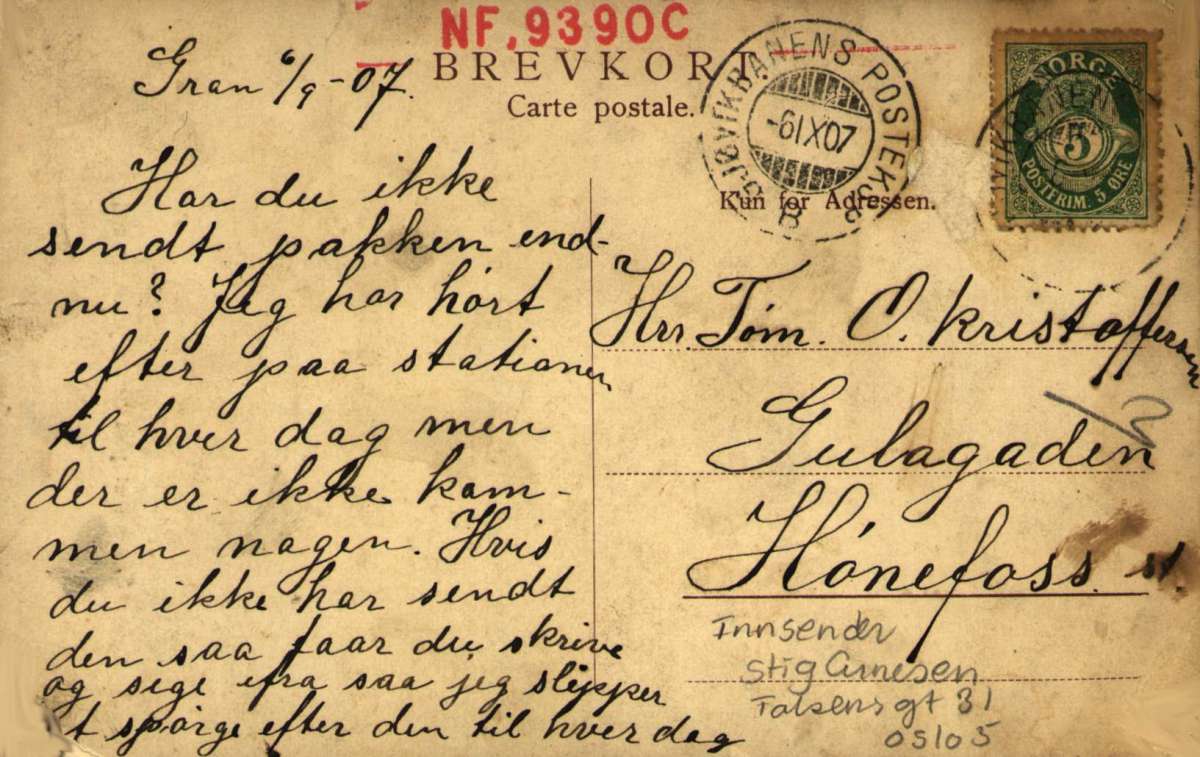 NF. 9390C
BREVKORT
Carte postale.
GJØVIKBANENS POSTEKSP. B
-6IX07
NORGE
5
POSTFRIM. 5 ØRE
Kun for Adressen.
Gran 6/9-07.
Har du ikke
sendt pakken end-
nu? Jeg har hört
efter paa stationen
til hver dag men
der er ikke kom-
men nogen. Hvis
du ikke har sendt
den saa faar du skrive
og sige ifra saa jeg slipper
at spörge efter den til hver dag
Hrr. Tøm. O. Kristoffersen
Gulagaden
Hönefoss. st.
Innsender
Stig Arnesen
Falsens gt 31
Oslo 5